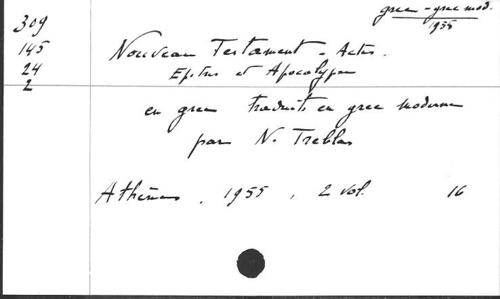 grec-grec mod.
1955
309
145
24
2
Nouveau Testament - Actes.
Epitres et Apocalypse
en grec traduits en grec moderne
par N. Tremblas
Athènes, 1955, 2 vol. 16